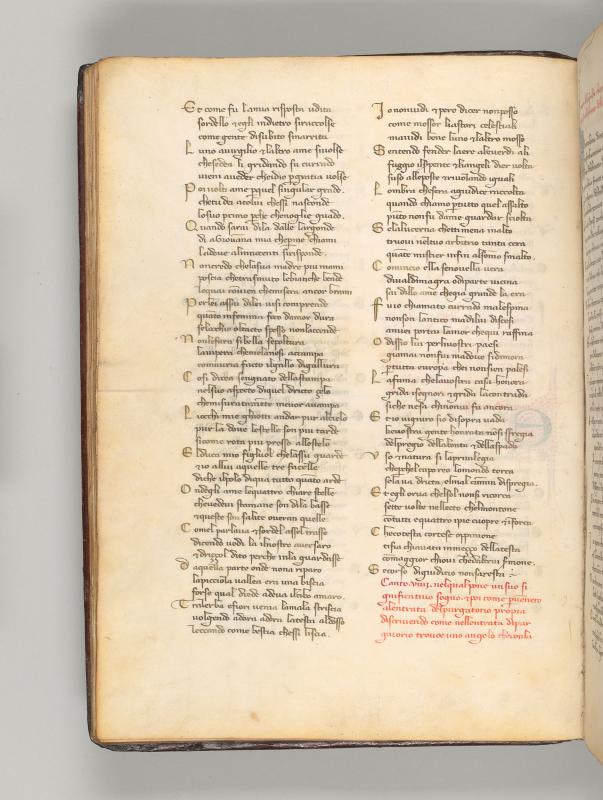 Et come fu lamia risposta udita
sordello & egli indietro siraccolse
come gente disubito smarrita
Luno auirgilio & laltro ame siuolse
chesedea li gridando su currado
uieni aueder cheidio pgratia uolse
Poi uolta ame pquel singular grado
chetu dei acolui chessi nasconde
losuo primo pche chenoglie guado.
Quando sarai dila dalle largonde
di agiouana mia cheperme chiami
laddoue alinnocenti sirisponde.
Non credo chelasua madre piu mami
poscia chetrasmuto lebianche bende
lequai conuen chemisera ancor brami
Per lei assai dileui sicomprende
quato infemina foco damor dura
selocchio oltacto spesso nonlacende
Nonlifara sibella sepoltura
lauipera chemelanesi accampa
comauria facto ilgallo digallura
Cosi dicea sengnato dellastampa
nelsuo aspecto diquel dricto çelo
chemisuratamete incuor auampa
Locchi mie ghiotti andar pur alcielo
pur la doue lestelle son piu tarde
sicome rota piu presso allostelo
Elduca mio figliuol chelassu guarde
& io allui aquelle tre facelle
diche ilpolo diqua tutto quato arde
Ondegli ame lequattro chiare stelle
cheuedeui stamane son dila basse
& queste son salite oueran quelle
Comel parlaua & sordel asse l trasse
dicendo uedi la ilnostro auersaro
& drizzol dito perche inla guardasse
Da quella parte onde nona riparo
lapicciola uallea era una biscia
forse qual diede adeua ilcibo amaro.
Tra lerba efiori uenia lamala striscia
uolgendo adora adora latesta aldosso
leccando come bestia chessi liscia.
Io nonuidi & pero dicer nonposso
come mosser liastori celestiali
mauidi bene luno & laltro mosso
Sentendo fender laere aleuerdi ali
fuggio ilserpente & liangeli dier uolta
suso alleposte riuolando iguali
Lombra chesera agiudice raccolta
quando chiamo ptutto quel assalto
punto nonfu dame guardar sciolta
Selalucerna chetti mena inalto
truoui neltuo arbitrio tanta cera
quate mistier infin alsomo smalto.
Comincio ella senouella uera
diualdimagra odiparte uicina
sai dillo ame chegia grande la era
Fuio chiamato currado malespina
nonson lantico madilui discesi
amiei portai lamor chequi raffina
O dissio lui perliuostri paesi
giamai nonfui madoue sidimora
ptutta europa chei nonsien palesi
Lafama chelauostra casa honora
grida isegnori & grida lacontrada
siche nesa chinonui fu ancora
Et io uigiuro sio disopra uada
keuostra gente honrata nosi sfregia
delpregio dellaborsa & dellaspada
Uso & natura si lapriuilegia
cheperchelcapo reo lomondo torca
sola ua dricta elmal camin dispregia.
Et egli orua chelsol nonsi ricorca
sette uolte nellecto chelmontone
cotutti equattro pie cuopre & inforca
Checotesta cortese oppinione
tifia chiauata inmezzo dellatesta
comaggior chioui chedaltrui sermone.
Secorso digiudicio nonsarresta :~
Canto. viiii. nelqual pone unsuo si
gnificatiuo sogno. & poi come puenero
alentrata delpurgatorio propria
discriuendo come nellentrata dipur
gatorio trouoe uno angelo checonla